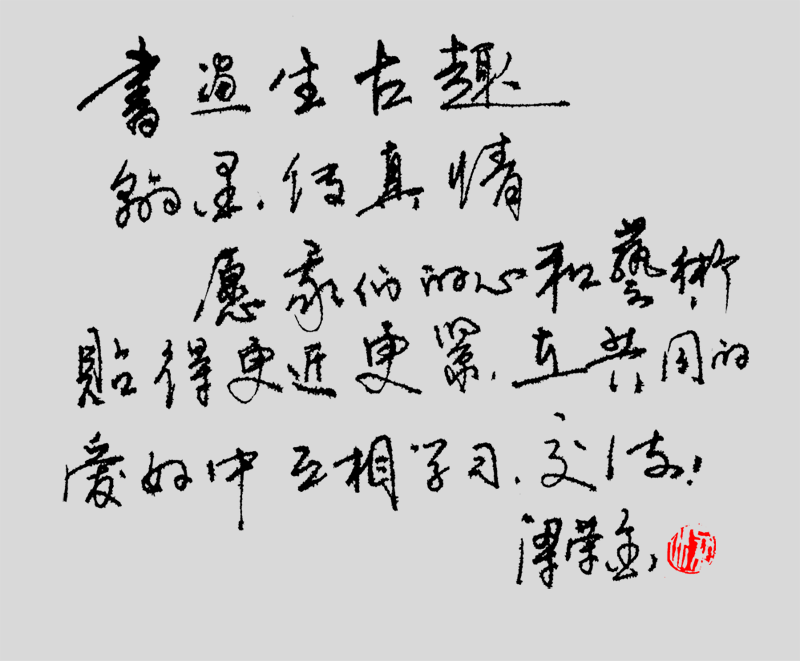 書畫生古趣
翰墨.传真情
愿我们的心和藝術
貼得更近更紧，在共同的
愛好中互相学习、交流！
梁荣金